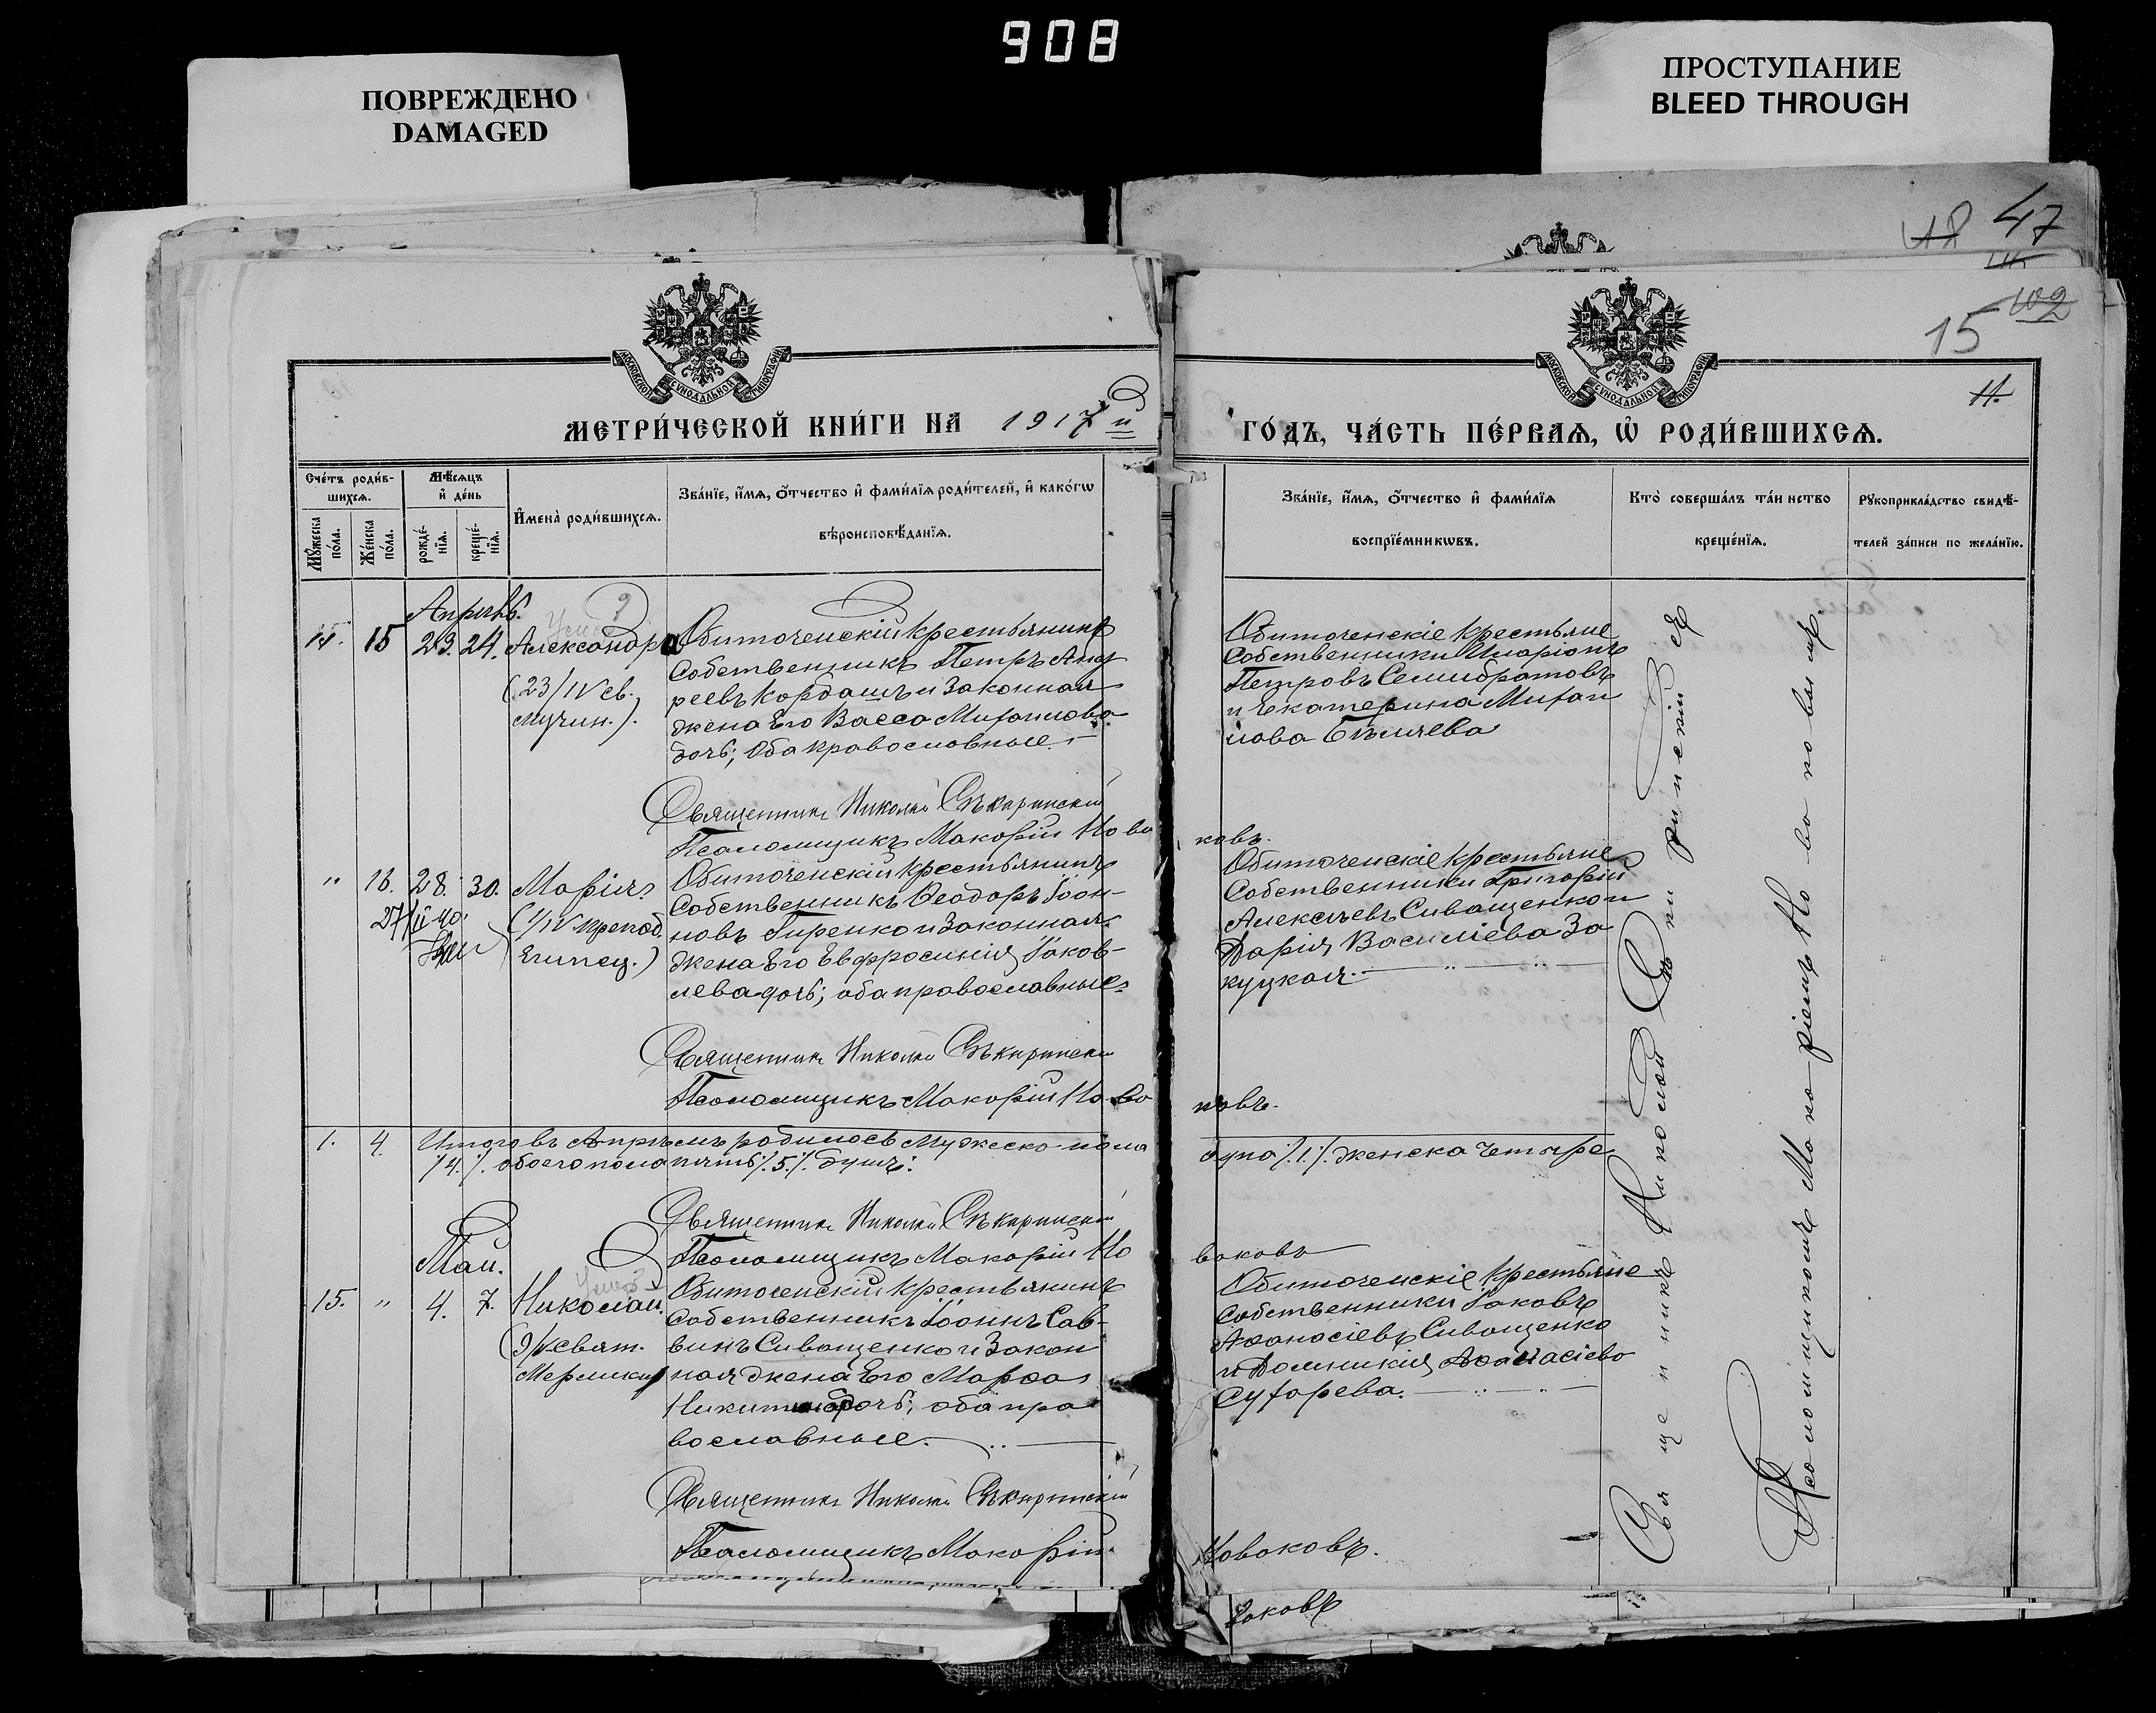 908
ПОВРЕЖДЕНО
DAMAGED
ПРОСТУПАНИЕ
BLEED THROUGH
47
102
15
11.
МОСКОВСКОЙ СѴНОДАЛЬНОЙ ТИПОГРАФІИ
МОСКОВСКОЙ СѴНОДАЛЬНОЙ ТИПОГРАФІИ
МЕТРИ́ЧЕСКОЙ КНИ́ГИ НА 1917й
ГО́ДЪ, ЧА́СТЬ ПЕ́РВАѦ, Ѡ҆ РОДИ́ВШИХСѦ.
Сче́тъ роди́в-
шихсѧ.
Мꙋ́жеска по́ла.
Же́нска по́ла.
Мѣ́сѧцъ
и҆ де́нь
рожде́-
нїѧ.
креще́-
нїѧ.
И҆мена̀ роди́вшихсѧ.
Зва́нїе, и҆́мѧ, ѻ҆́тчество и҆ фами́лїѧ роди́телей, и҆ како́гѡ
вѣроисповѣ́данїѧ.
Зва́нїе, и҆́мѧ, ѻ҆́тчество и҆ фами́лїѧ
воспрїе́мникѡвъ.
Кто̀ соверша́лъ та́инство
креще́нїѧ.
Рꙋкоприкла́дство свидѣ́-
телей за́писи по жела́нїю.
Апрѣль.
15 23. 24. Александра
(23/IV св.
мучен.).
Обиточенскій крестьянинъ
собственникъ Петръ Анд
реевъ Кордашъ и законная
жена его Васса Михаилова
дочь; оба православные.
Обиточенскіе крестьяне
собственники Иларіонъ
Петровъ Семибратовъ
и Екатерина Михаи
лова Бѣляева
Священникъ Николай Сѣкиринскій
Псаломщикъ Макарій Нова
ковъ.
" 16. 28. 30. Марія
(1/IV препод.
Египец.)
Обиточенскій крестьянинъ
собственникъ Ѳеодоръ Іоан-
новъ Гиренко и законная
жена его Евфросинія Іаков-
лева дочь; оба православные
Обиточенскіе крестьяне
собственники Григорій
Алексѣевъ Сиващенко и
Дарія Василіева За
куцкая.
Священникъ Николай Сѣкиринскій
Псаломщикъ Макарій Нова
ковъ.
1. 4. Итого въ Апрѣлѣ родилось мужеска пола
одна /1/ женска четыре
/4/. обоего пола пять /5/. душъ.
Священникъ Николай Сѣкиринскій
Псаломщикъ Макарій Но
ваковъ
Май.
15. " 4. 7. Николай.
(9/V свят.
Мерликій
Обиточенскій крестьянинъ
собственникъ Іоаннъ Сав-
винъ Сиващенко и закон
ная жена его Марѳа
Никитина дочь; оба пра
вославные.
Обиточенскіе крестьяне
собственники Іаковъ
Аѳанасіевъ Сиващенко
и Домникія Аѳанасіева
Сухарева.
Священникъ Николай Сѣкиринскій
Псаломщикъ Макарій
Новаковъ.
Священникъ Николай Сѣкиринскій
Псаломщикомъ Макаріемъ Новаковымъ.
ваковъ